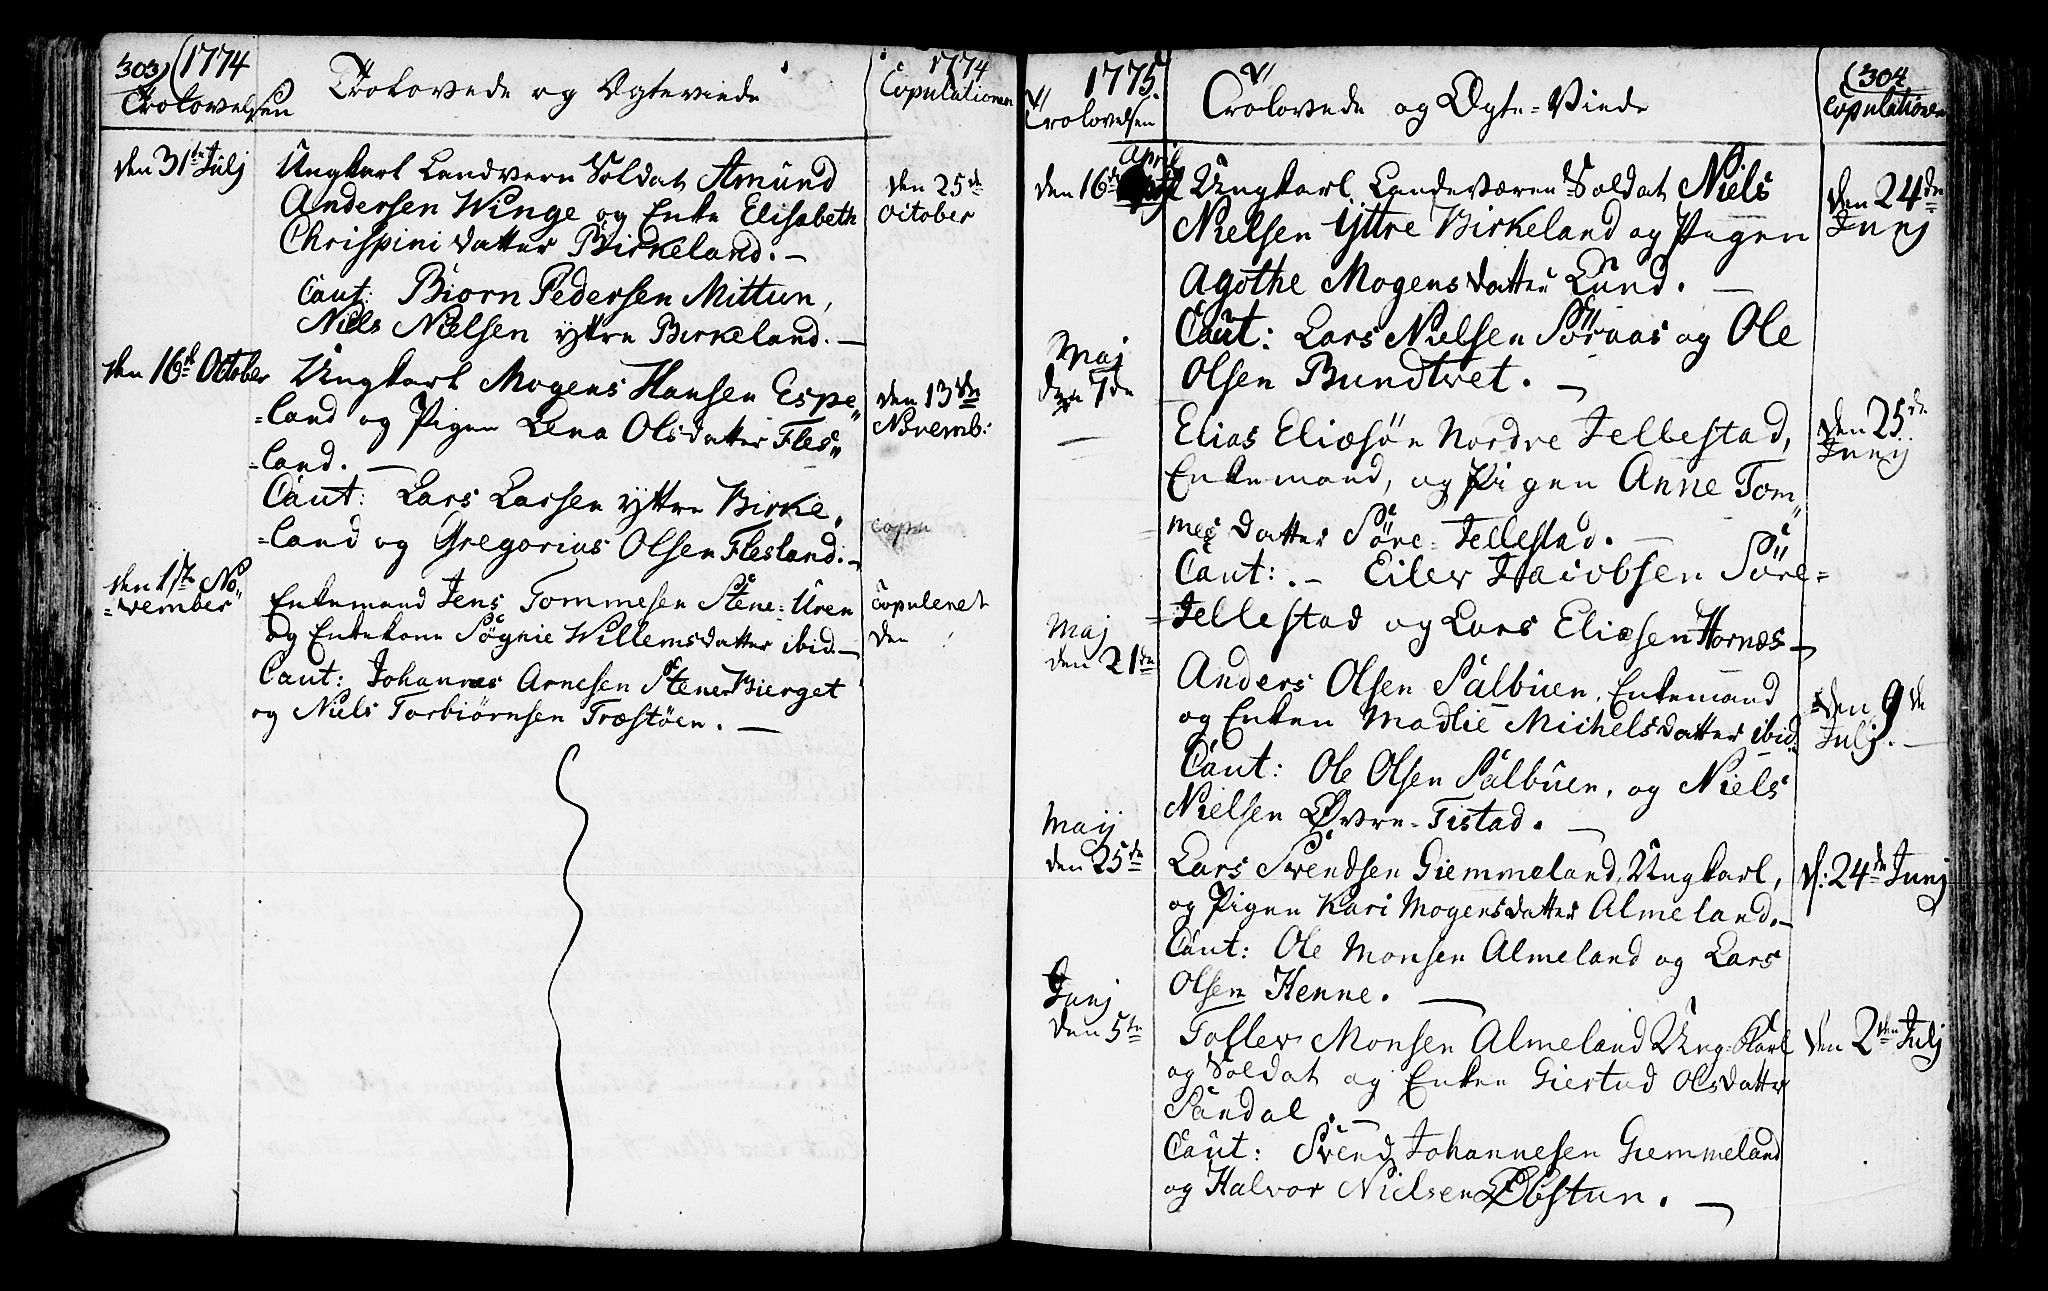 303) (1774
Trolovelsen
Trolovede og Ægteviede
1774
Copulationen
den 31te Julj
Ungkarl Landvern Soldat Amund
Andersen Winge og Enke Elisabeth
Chrispini datter Birkeland. –
Caut: Biørn Pedersen Mittun,
Niels Nielsen yttre Birkeland. –
den 25de
October
den 16d October
Ungkarl Mogens Hansen Espe„
=land og Pigen Lena Olsdatter Fles„
=land. –
Caut: Lars Larsen yttre Birke„
=land og Gregorius Olsen Flesland. –
den 13de
Novemb:
copu
den 1ste No„
=vember
Enkemand Jens Tommesen Stene=Uren
og Enkekone Søgnie Willemsdatter ibid. –
Caut: Johannes Arnesen Stene Bierget
og Niels Torbiørnsen Træstøen. –
Copuleret
den
1775.
Trolovelsen
Trolovede og Ægte=Viede
(304
Copulationen
April
den 16de
Ungkarl Landeværen Soldat Niels
Nielsen Yttre Birkeland og Pigen
Agothe Mogensdatter Lund. –
Caut: Lars Nielsen Søraas og Ole
Olsen Bundtvet. –
den 24de
Junj
Maj
den 7de
Elias Eliæsøn Nordre Jellestad,
Enkemand, og Pigen Anne Tom„
mesdatter Søre=Jellestad. –
Caut: . – Eiler Jacobsen Søre=
=Jellestad og Lars Eliæsen Hornæs –
den 25de
Junij
Maj
den 21de
Anders Olsen Sælbuen, Enkemand
og Enken Madlie Michelsdatter ibid.
Caut: Ole Olsen Sælbuen, og Niels
Nielsen Øvre=Tistad. –
den 9de
Julj. –
Maij
den 25de
Lars Svendsen Giemmeland, Ungkarl,
og Pigen Kari Mogensdatter Almeland. –
Caut: Ole Monsen Almeland og Lars
Olsen Henne. –
d: 24de Junj
Junj
den 5te
Tosler Monsen Almeland Ung=Karl
og Soldat og Enken Giertud Olsdatter
Sandal. –
Caut: Svend Johannesen Giemmeland
og Halvor Nielsen Øbstun. –
den 2den Julj